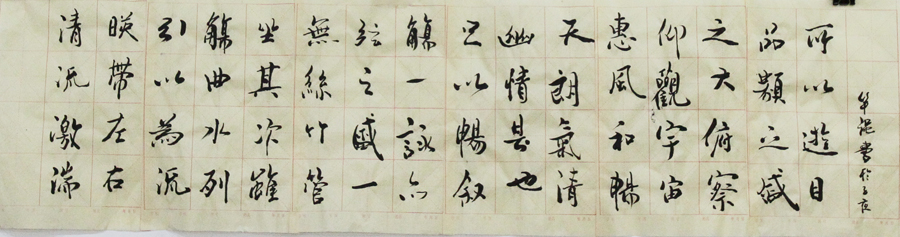 清流激湍
暎帶左右
引以為流
觴曲水列
坐其次雖
無絲竹管
絃之盛一
觴一詠亦
足以暢叙
幽情是也
天朗氣清
惠風和暢
仰觀宇宙
之大俯察
品類之盛
所以遊目
書於子夜